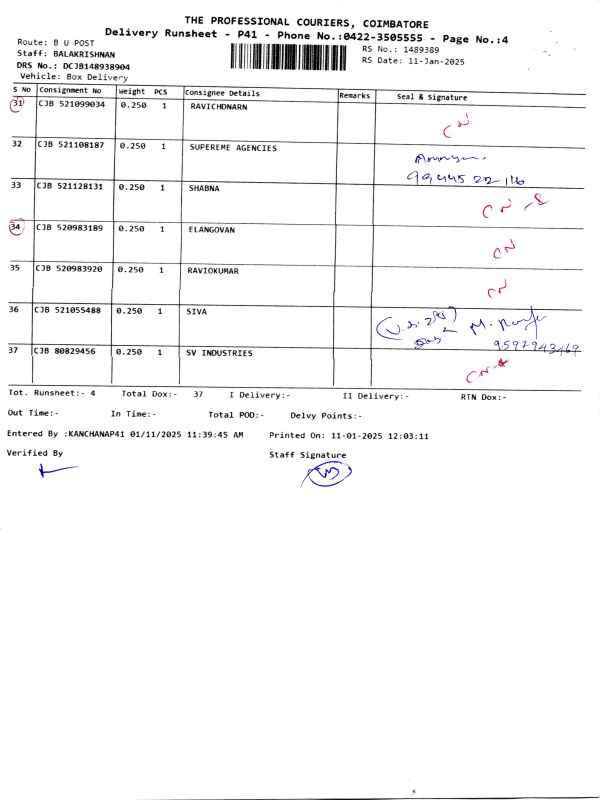 THE PROFESSIONAL COURIERS, COIMBATORE
Delivery Runsheet - P41 - Phone No.:0422-3505555 - Page No.:4
Route: B U POST
RS No.: 1489389
Staff: BALAKRISHNAN
RS Date: 11-Jan-2025
DRS No.: DCJB148938904
Vehicle: Box Delivery
S No Consignment No Weight PCS Consignee Details Remarks Seal & Signature
31 CJB 521099034 0.250 1 RAVICHDNARN CN
32 CJB 521108187 0.250 1 SUPEREME AGENCIES
33 CJB 521128131 0.250 1 SHABNA CN
34 CJB 520983189 0.250 1 ELANGOVAN CN
35 CJB 520983920 0.250 1 RAVIOKUMAR CN
36 CJB 521055488 0.250 1 SIVA
9597943469
37 CJB 80829456 0.250 1 SV INDUSTRIES CN
Tot. Runsheet:- 4 Total Dox:- 37 I Delivery:- II Delivery:- RTN Dox:-
Out Time:- In Time:- Total POD:- Delvy Points:-
Entered By :KANCHANAP41 01/11/2025 11:39:45 AM Printed On: 11-01-2025 12:03:11
Verified By Staff Signature